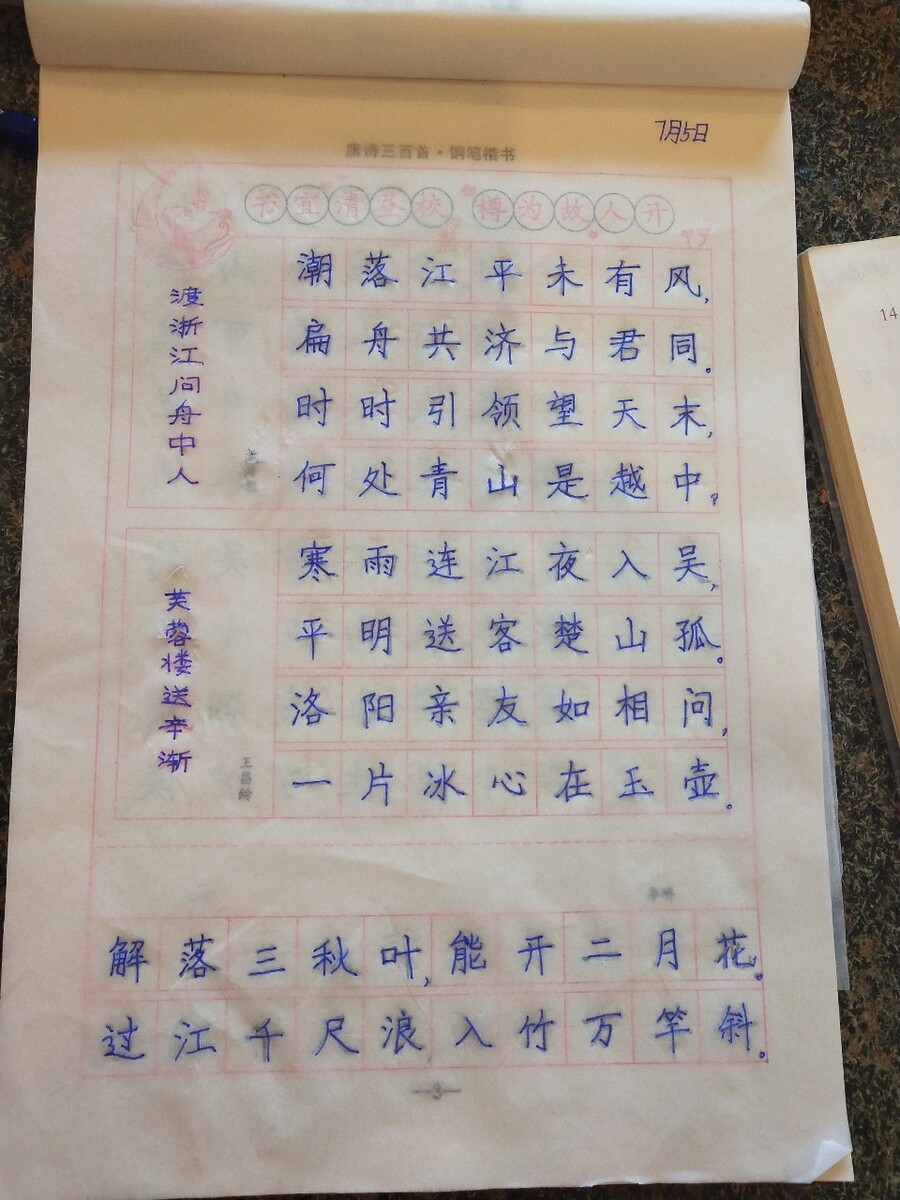 7月5日
唐诗三百首·钢笔楷书
书宜清昼校 樽为故人开
渡浙江问舟中人
潮落江平未有风,
扁舟共济与君同。
时时引领望天末,
何处青山是越中?
芙蓉楼送辛渐
王昌龄
寒雨连江夜入吴,
平明送客楚山孤。
洛阳亲友如相问,
一片冰心在玉壶。
李峤
解落三秋叶,能开二月花。
过江千尺浪,入竹万竿斜。
—3—
14